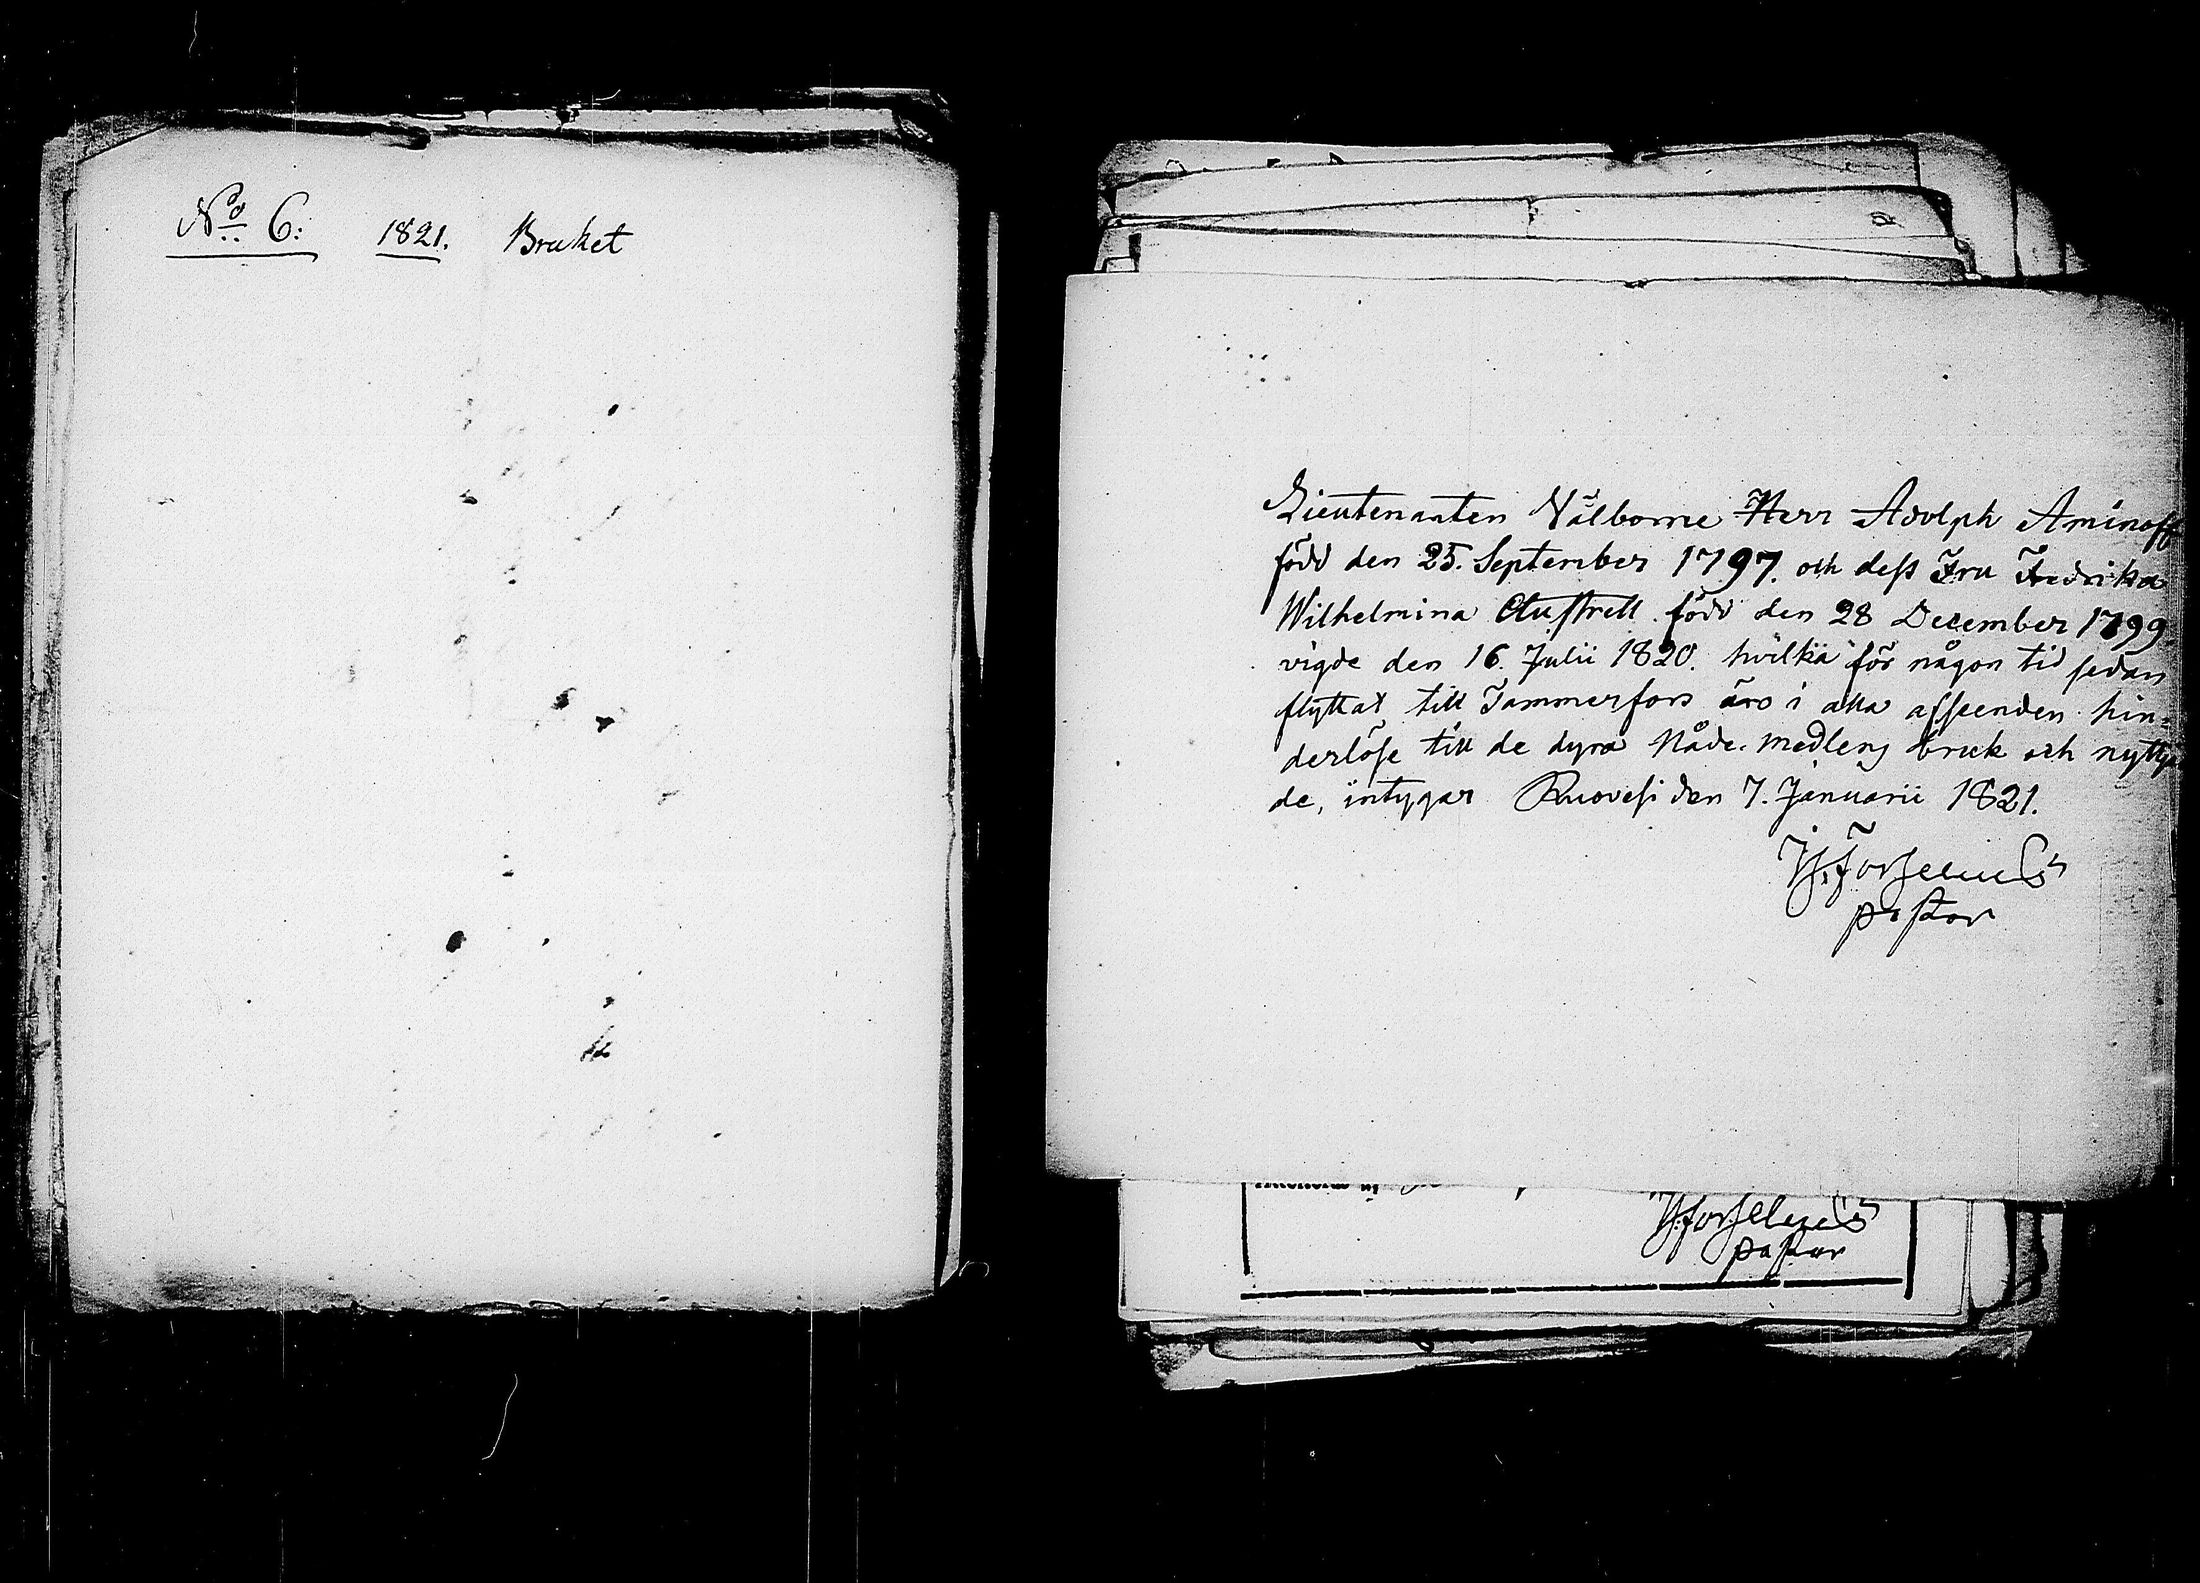 No 6: 1821. Bruket
Lieutenanten Välborne Herr Adolph Aminoff
född den 25. September 1797. och dess Fru Fredrika
Wilhelmina Clustrell född den 28 December 1799
vigde den 16. Julii 1820. hvilka för någon tid sedan
flyttat till Tammerfors äro i alla afseenden hin=
derlöse till de dyra Nåde-medlens bruk och nyttjan
de, intygar Ruovesi den 7. Januarii 1821.
H. Forselius
pastor
H. Forselius
pastor